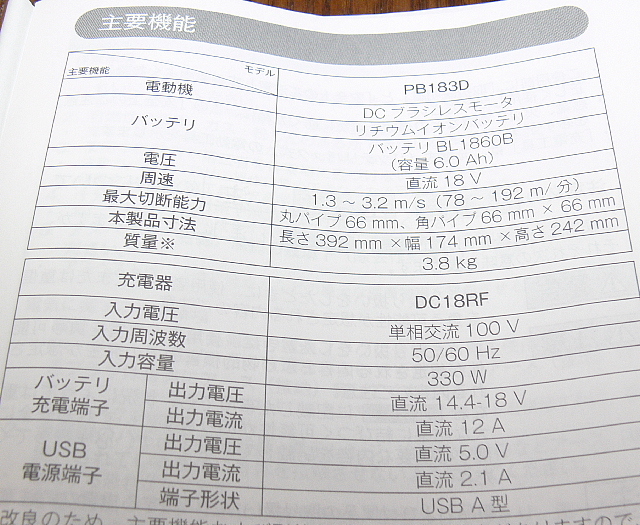 主要機能
主要機能 モデル PB183D
電動機 DCブラシレスモータ
バッテリ リチウムイオンバッテリ
バッテリ BL1860B
(容量 6.0 Ah)
電圧 直流 18 V
周速 1.3 ~ 3.2 m/s (78 ~ 192 m/ 分)
最大切断能力 丸パイプ 66 mm、角パイプ 66 mm × 66 mm
本製品寸法 長さ 392 mm ×幅 174 mm ×高さ 242 mm
質量※ 3.8 kg
充電器 DC18RF
入力電圧 単相交流 100 V
入力周波数 50/60 Hz
入力容量 330 W
バッテリ充電端子 出力電圧 直流 14.4-18 V
出力電流 直流 12 A
USB電源端子 出力電圧 直流 5.0 V
出力電流 直流 2.1 A
端子形状 USB A 型
改良のため、主要機能